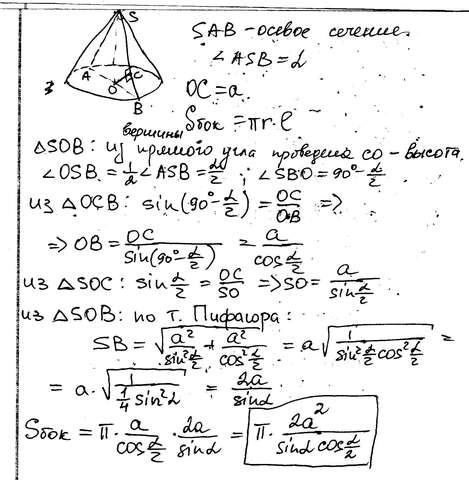 S
A
C
O
B
SAB - осевое сечение
∠ASB = α
OC = a
Sбок = πr·l
вершины
ΔSOB: из прямого угла проведена CO - высота.
∠OSB = 1/2 ∠ASB = α/2 ; ∠SBO = 90° - α/2
из ΔOCB: sin(90° - α/2) = OC/OB =>
=> OB = OC/sin(90° - α/2) = a/cos α/2
из ΔSOC: sin α/2 = OC/SO => SO = a/sin α/2
из ΔSOB: по т. Пифагора:
SB = √(a²/sin² α/2 + a²/cos² α/2) = a√(1/(sin² α/2 cos² α/2)) =
= a·√(1/(1/4 sin² α)) = 2a/sin α
Sбок = π · a/cos α/2 · 2a/sin α = π · 2a²/(sin α cos α/2)